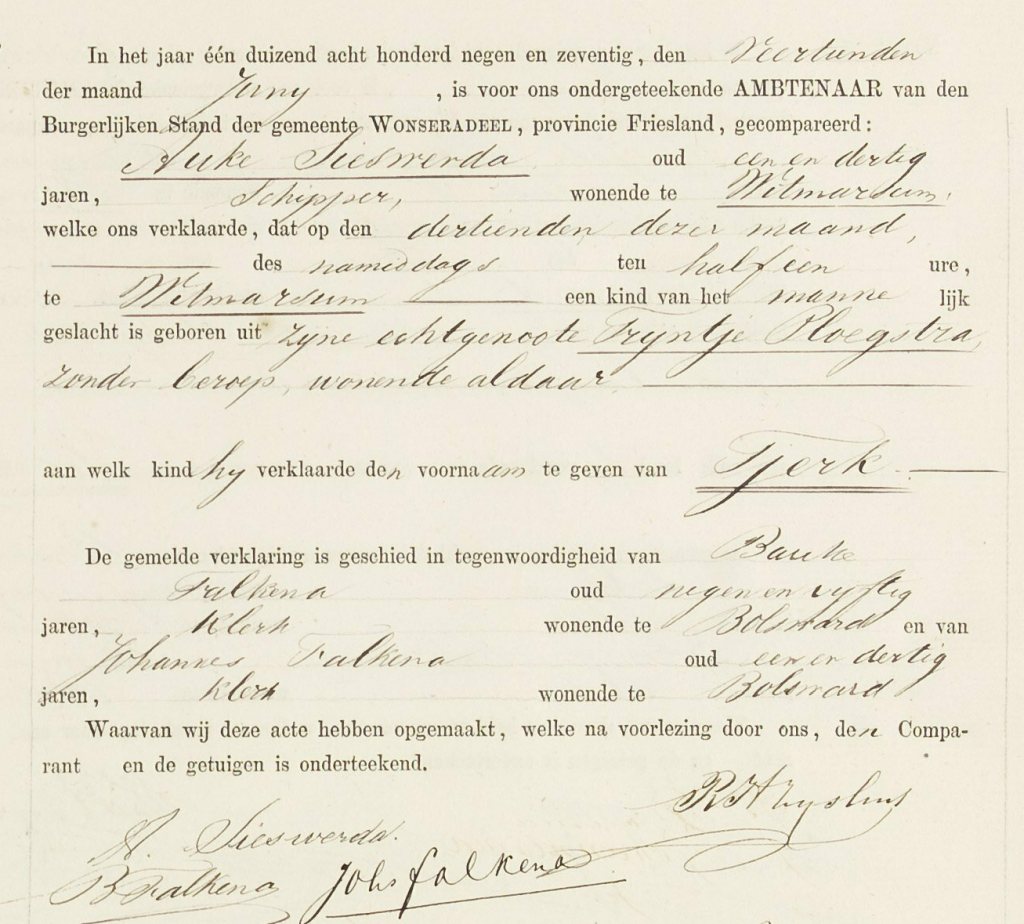 In het jaar één duizend acht honderd negen en zeventig, den Veertienden
der maand Juny , is voor ons ondergeteekende AMBTENAAR van den
Burgerlijken Stand der gemeente WONSERADEEL, provincie Friesland, gecompareerd:
Auke Sieswerda oud een en dertig
jaren, Schipper, wonende te Witmarsum,
welke ons verklaarde, dat op den dertienden dezer maand,
des nameddags ten half een ure,
te Witmarsum een kind van het manne lijk
geslacht is geboren uit zyne echtgenoote Tryntje Ploegstra,
zonder beroep, wonende aldaar
aan welk kind hy verklaarde den voornaam te geven van Tjerk.
De gemelde verklaring is geschied in tegenwoordigheid van Bauke
Falkena oud negen en vyftig
jaren, Klerk wonende te Bolsward en van
Johannes Falkena oud een en dertig
jaren, Klerk wonende te Bolsward
Waarvan wij deze acte hebben opgemaakt, welke na voorlezing door ons, den Compa-
rant en de getuigen is onderteekend.
A. Sieswerda.
B Falkena Johs falkena